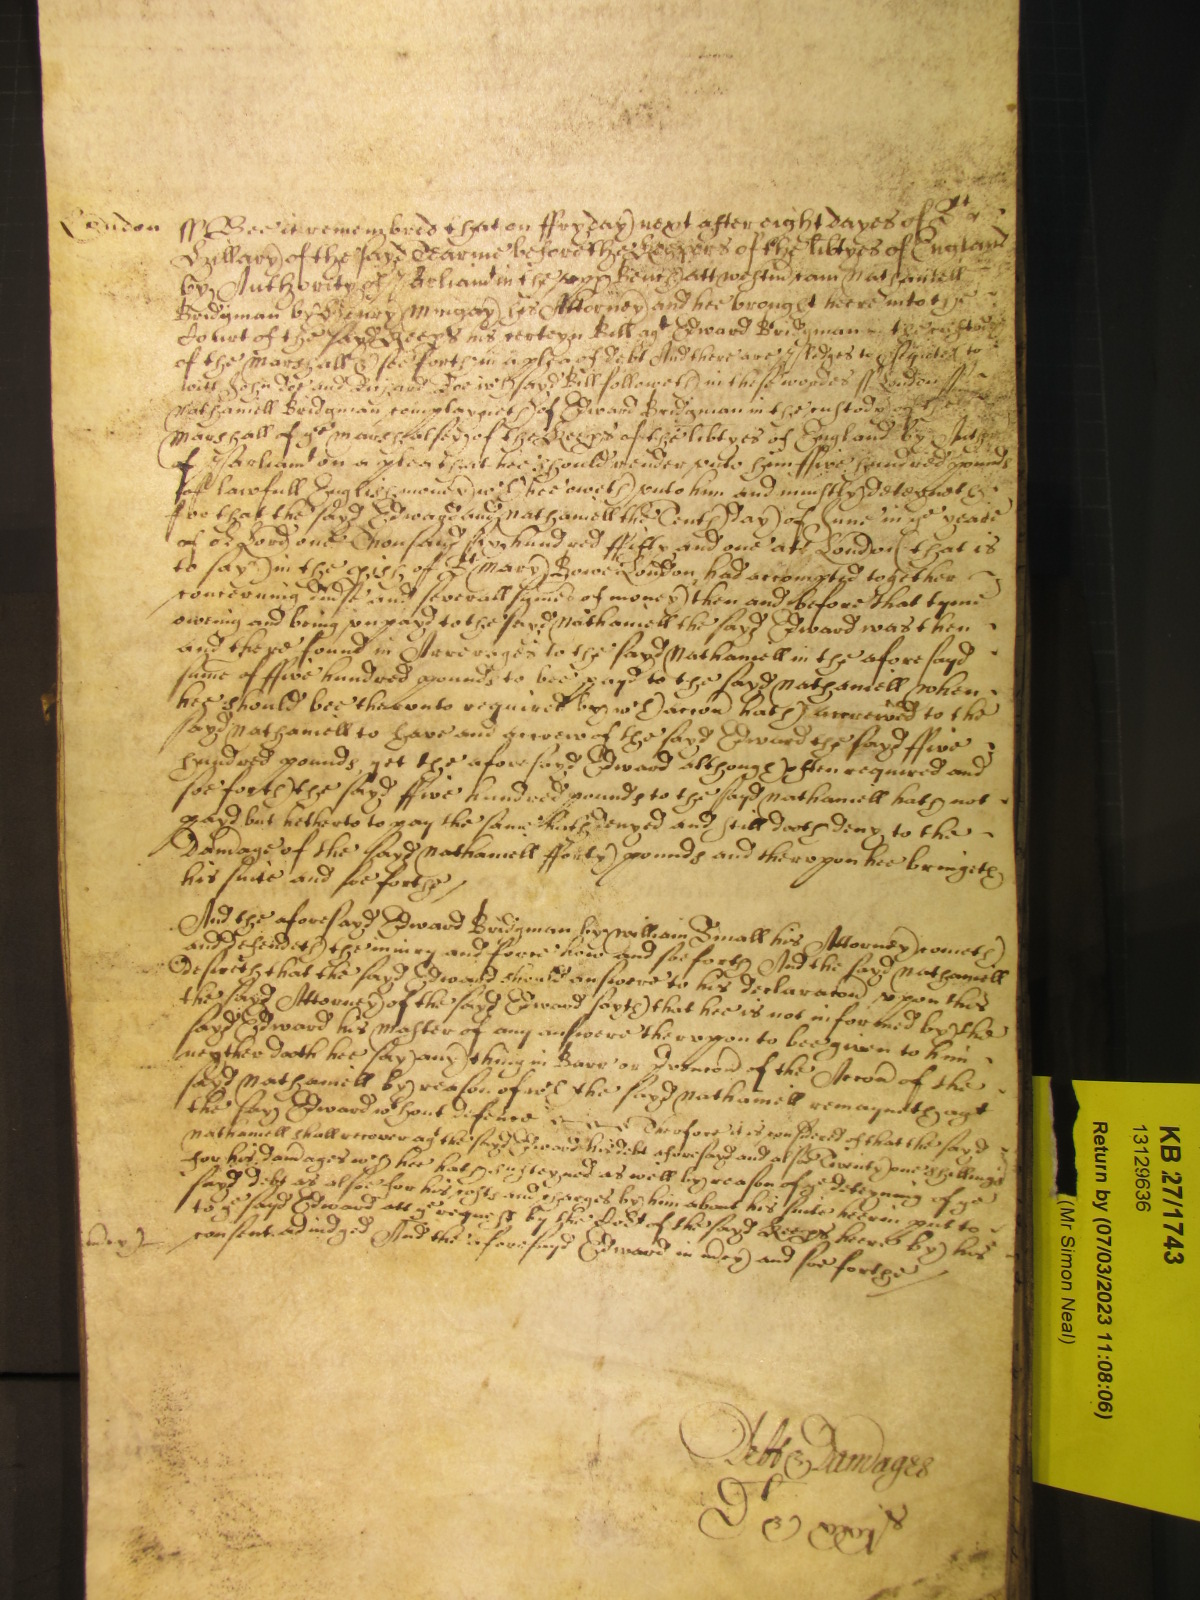 London ss Bee it remembred that on ffryday next after eight dayes of St
Hillary of the sayd Tearme before the Keepers of the libtyes of England
by Authority of Parliamt in the upp Bench att westm cam Nathaniell
Bridgman by Henry Mingay his Attorney and hee brought heere into the
Court of the sayd Keeps his certeyn Bill agt Edward Bridgman in the custody
of the Marshall & soe forth in a plea of debt And there are Pledges to psequte to
witt John Doe and Richard Roe wch sayd Bill followeth in these wordes ss London ss
Nathaniell Bridgman complayneth of Edward Bridgman in the custody of the
Marshall of ye Marshalsey of the Keeps of the libtyes of England by Autho
of Parliamt on a plea that hee should render unto him ffive hundred pounds
of lawfull English money wch hee oweth unto him and uniustly deteyneth
ffor that the sayd Edward and Nathaniell the Tenth day of June in ye yeare
of or Lord one Thousand six hundred ffifty and one att London that is
to say in the pish of St Mary Bowe London had accompted together
concerning divse and severall sumes of money then and before that tyme
oweing and being unpayd to the sayd Nathaniell the sayd Edward was then
and there found in Arrerages to the sayd Nathaniell in the aforesayd
sume of ffive hundred pounds to bee payd to the sayd Nathaniell when
hee should bee thereunto required by wch accon hath accrewed to the
sayd Nathaniell to have and require of the sayd Edward the sayd ffive
hundred pounds yet the aforesayd Edward although often required and
soe forth the sayd ffive hundred pounds to the sayd Nathaniell hath not
payd but hetherto to pay the same hath denyed and still doth deny to the
Damage of the sayd Nathaniell fforty pounds and thereupon hee bringeth
his suite and soe forthe
And the aforesayd Edward Bridgman by William Small his Attorney cometh
and defendeth the iniury and force when and soe forth And the sayd Nathaniell
desireth that the sayd Edward should answere to his declaracon upon this
the sayd Attorney of the sayd Edward sayth that hee is not informed by the
sayd Edward his Master of any answere thereupon to bee given to him
neyther doth hee say any thing in Barr or Prvencon of the Accon of the
sayd Nathaniell by reason of wch the sayd Nathaniell remayneth agt
the sayd Edward wthout defence Therefore it is considered of that the sayd
Nathaniell shall recover agt the sayd Edward his debt aforesayd and alsoe Twenty one shillings
for his damages wch hee hath susteyned as well by reason of ye deteyning of ye
sayd debt as alsoe for his costs and charges by him about his suite herein put to
to ye sayd Edward att ye request by the Cort of the sayd Keeps heere by his
mcy consent adiudged And the aforesayd Edward in mcy and soe forthe
Debt & Damages
Dl & xxis
KB 27/1743
13129636
Return by (07/03/2023 11:08:06)
(Mr Simon Neal)